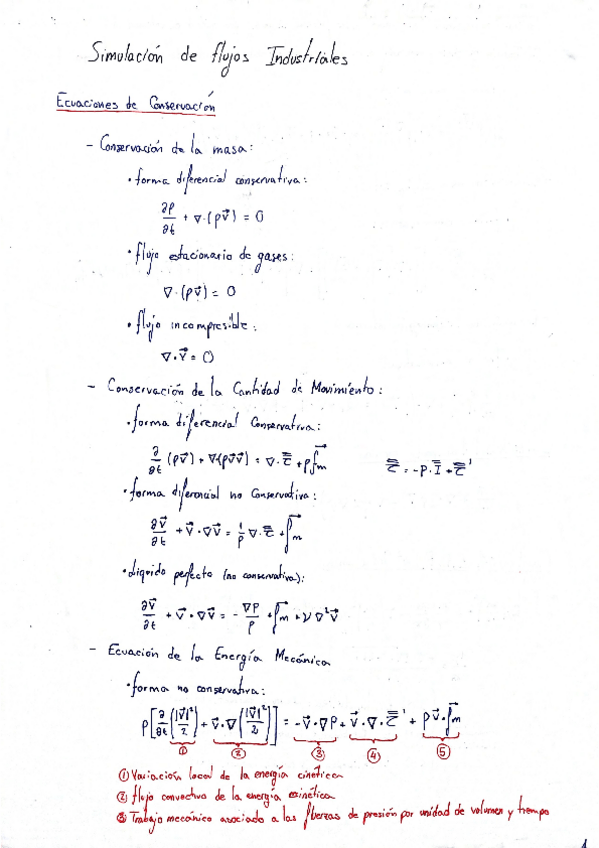 Simulación de flujos Industriales
Ecuaciones de Conservación
- Conservación de la masa:
• forma diferencial conservativa:
∂ρ/∂t + ∇·(ρv⃗) = 0
• flujo estacionario de gases:
∇·(ρv⃗) = 0
• flujo incompresible:
∇·v⃗ = 0
- Conservación de la Cantidad de Movimiento:
• forma diferencial Conservativa:
∂/∂t (ρv⃗) + ∇(ρv⃗v⃗) = ∇·τ̿ + ρf⃗m    τ̿ = -P·I̿ + τ̿'
• forma diferencial no Conservativa:
∂v⃗/∂t + v⃗·∇v⃗ = 1/ρ ∇·τ̿ + f⃗m
• Líquido perfecto (no conservativa):
∂v⃗/∂t + v⃗·∇v⃗ = - ∇P/ρ + f⃗m + ν∇²v⃗
- Ecuación de la Energía Mecánica
• forma no conservativa:
ρ[∂/∂t(|v⃗|²/2) + v⃗·∇(|v⃗|²/2)] = -v⃗·∇P + v⃗·∇·τ̿' + ρv⃗·f⃗m
① ② ③ ④ ⑤
① Variación local de la energía cinética
② flujo convectivo de la energía cinética
③ Trabajo mecánico asociado a las fuerzas de presión por unidad de volumen y tiempo
1